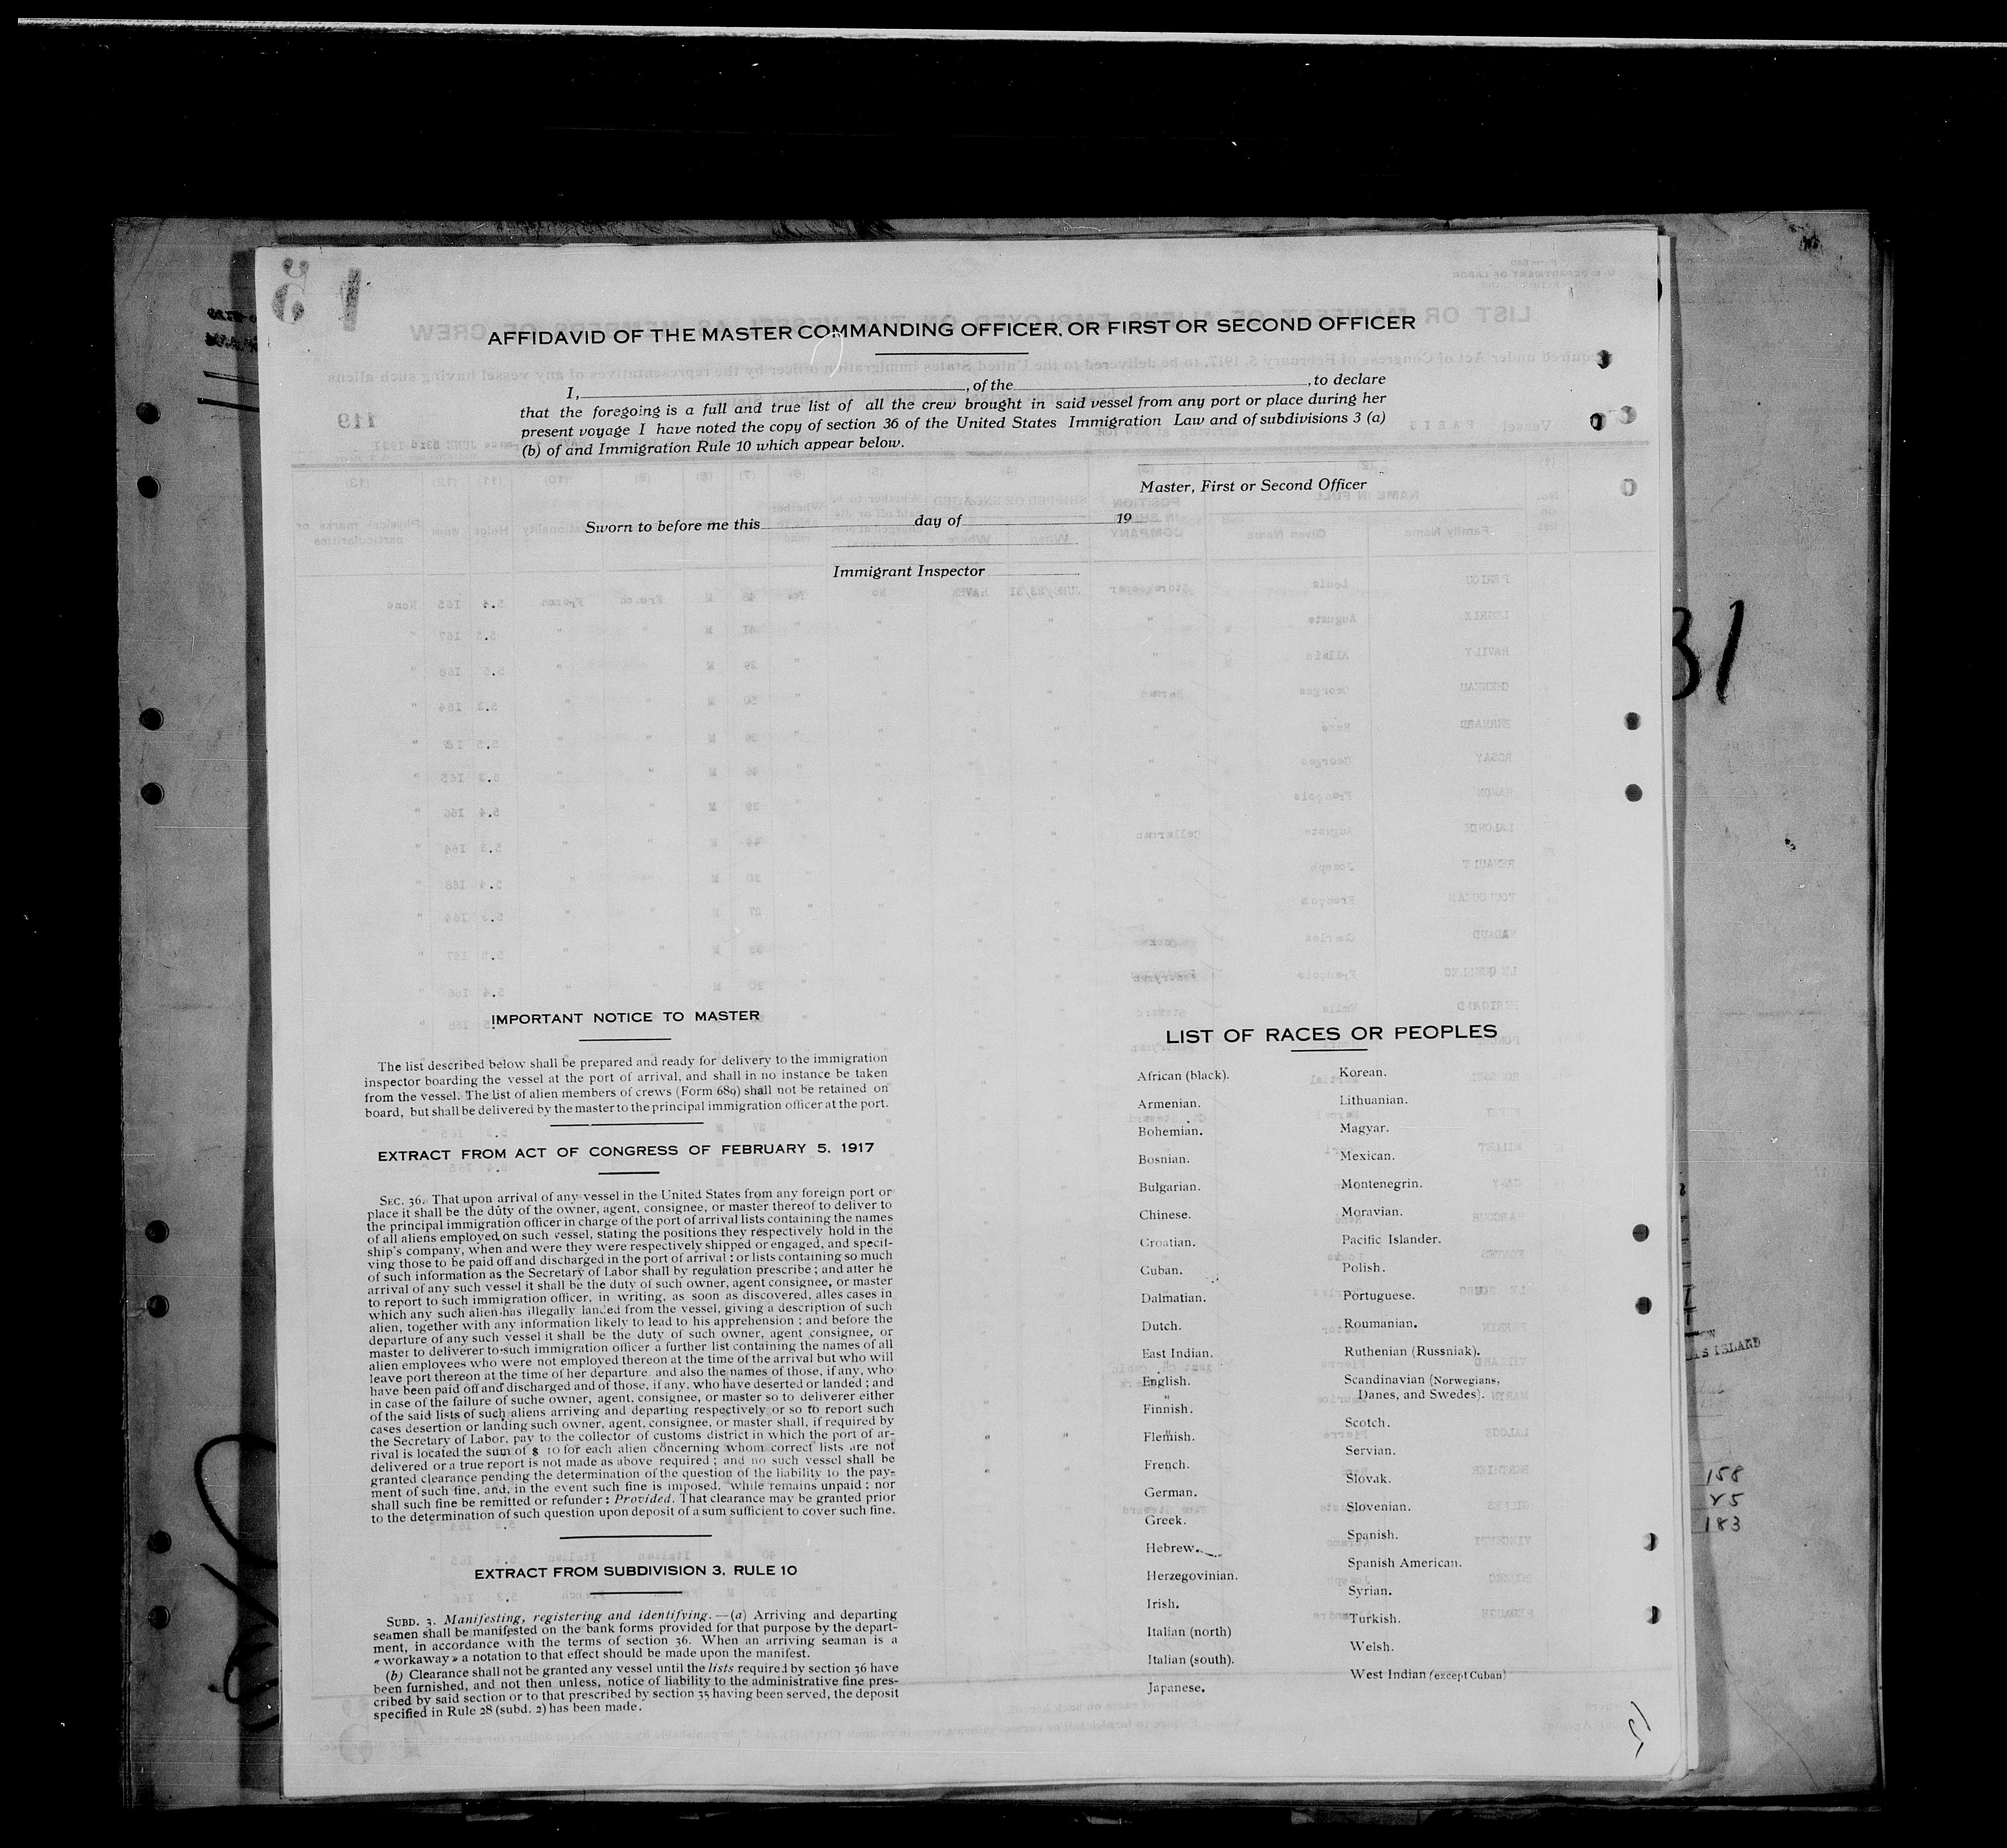 AFFIDAVID OF THE MASTER COMMANDING OFFICER, OR FIRST OR SECOND OFFICER
I, , of the , to declare
that the foregoing is a full and true list of all the crew brought in said vessel from any port or place during her
present voyage I have noted the copy of section 36 of the United States Immigration Law and of subdivisions 3 (a)
(b) of and Immigration Rule 10 which appear below.
Master, First or Second Officer
Sworn to before me this day of 19
Immigrant Inspector
IMPORTANT NOTICE TO MASTER
The list described below shall be prepared and ready for delivery to the immigration
inspector boarding the vessel at the port of arrival, and shall in no instance be taken
from the vessel. The list of alien members of crews (Form 689) shall not be retained on
board, but shall be delivered by the master to the principal immigration officer at the port.
EXTRACT FROM ACT OF CONGRESS OF FEBRUARY 5, 1917
SEC. 36. That upon arrival of any vessel in the United States from any foreign port or
place it shall be the duty of the owner, agent, consignee, or master thereof to deliver to
the principal immigration officer in charge of the port of arrival lists containing the names
of all aliens employed on such vessel, stating the positions they respectively hold in the
ship's company, when and were they were respectively shipped or engaged, and specif-
ving those to be paid off and discharged in the port of arrival ; or lists containing so much
of such information as the Secretary of Labor shall by regulation prescribe ; and alter he
arrival of any such vessel it shall be the duty of such owner, agent consignee, or master
to report to such immigration officer, in writing, as soon as discovered, alles cases in
which any such alien has illegally landed from the vessel, giving a description of such
alien, together with any information likely to lead to his apprehension ; and before the
departure of any such vessel it shall be the duty of such owner, agent consignee, or
master to deliverer to such immigration officer a further list containing the names of all
alien employees who were not employed thereon at the time of the arrival but who will
leave port thereon at the time of her departure. and also the names of those, if any, who
have been paid off and discharged and of those, if any. who have deserted or landed ; and
in case of the failure of suche owner, agent, consignee, or master so to deliverer either
of the said lists of such aliens arriving and departing respectively or so to report such
cases desertion or landing such owner, agent, consignee, or master shall, if required by
the Secretary of Labor, pay to the collector of customs district in which the port of ar-
rival is located the sum of $ 10 for each alien concerning whom correct lists are not
delivered or a true report is not made as above required ; and no such vessel shall be
granted clearance pending the determination of the question of the liability to the pay-
ment of such fine, and, in the event such fine is imposed, while remains unpaid ; nor
shall such fine be remitted or refunder : Provided. That clearance may be granted prior
to the determination of such question upon deposit of a sum sufficient to cover such fine.
EXTRACT FROM SUBDIVISION 3, RULE 10
SUBD. 3. Manifesting, registering and identifying. — (a) Arriving and departing
seamen shall be manifested on the bank forms provided for that purpose by the depart-
ment, in accordance with the terms of section 36. When an arriving seaman is a
« workaway » a notation to that effect should be made upon the manifest.
(b) Clearance shall not be granted any vessel until the lists required by section 36 have
been furnished, and not then unless, notice of liability to the administrative fine pres-
cribed by said section or to that prescribed by section 35 having been served, the deposit
specified in Rule 28 (subd. 2) has been made.
LIST OF RACES OR PEOPLES
African (black).
Armenian.
Bohemian.
Bosnian.
Bulgarian.
Chinese.
Croatian.
Cuban.
Dalmatian.
Dutch.
East Indian.
English.
Finnish.
Flemish.
French.
German.
Greek.
Hebrew.
Herzegovinian.
Irish.
Italian (north)
Italian (south).
Japanese.
Korean.
Lithuanian.
Magyar.
Mexican.
Montenegrin.
Moravian.
Pacific Islander.
Polish.
Portuguese.
Roumanian.
Ruthenian (Russniak).
Scandinavian (Norwegians,
Danes, and Swedes).
Scotch.
Servian.
Slovak.
Slovenian.
Spanish.
Spanish American.
Syrian.
Turkish.
Welsh.
West Indian (except Cuban)
31
158
25
183